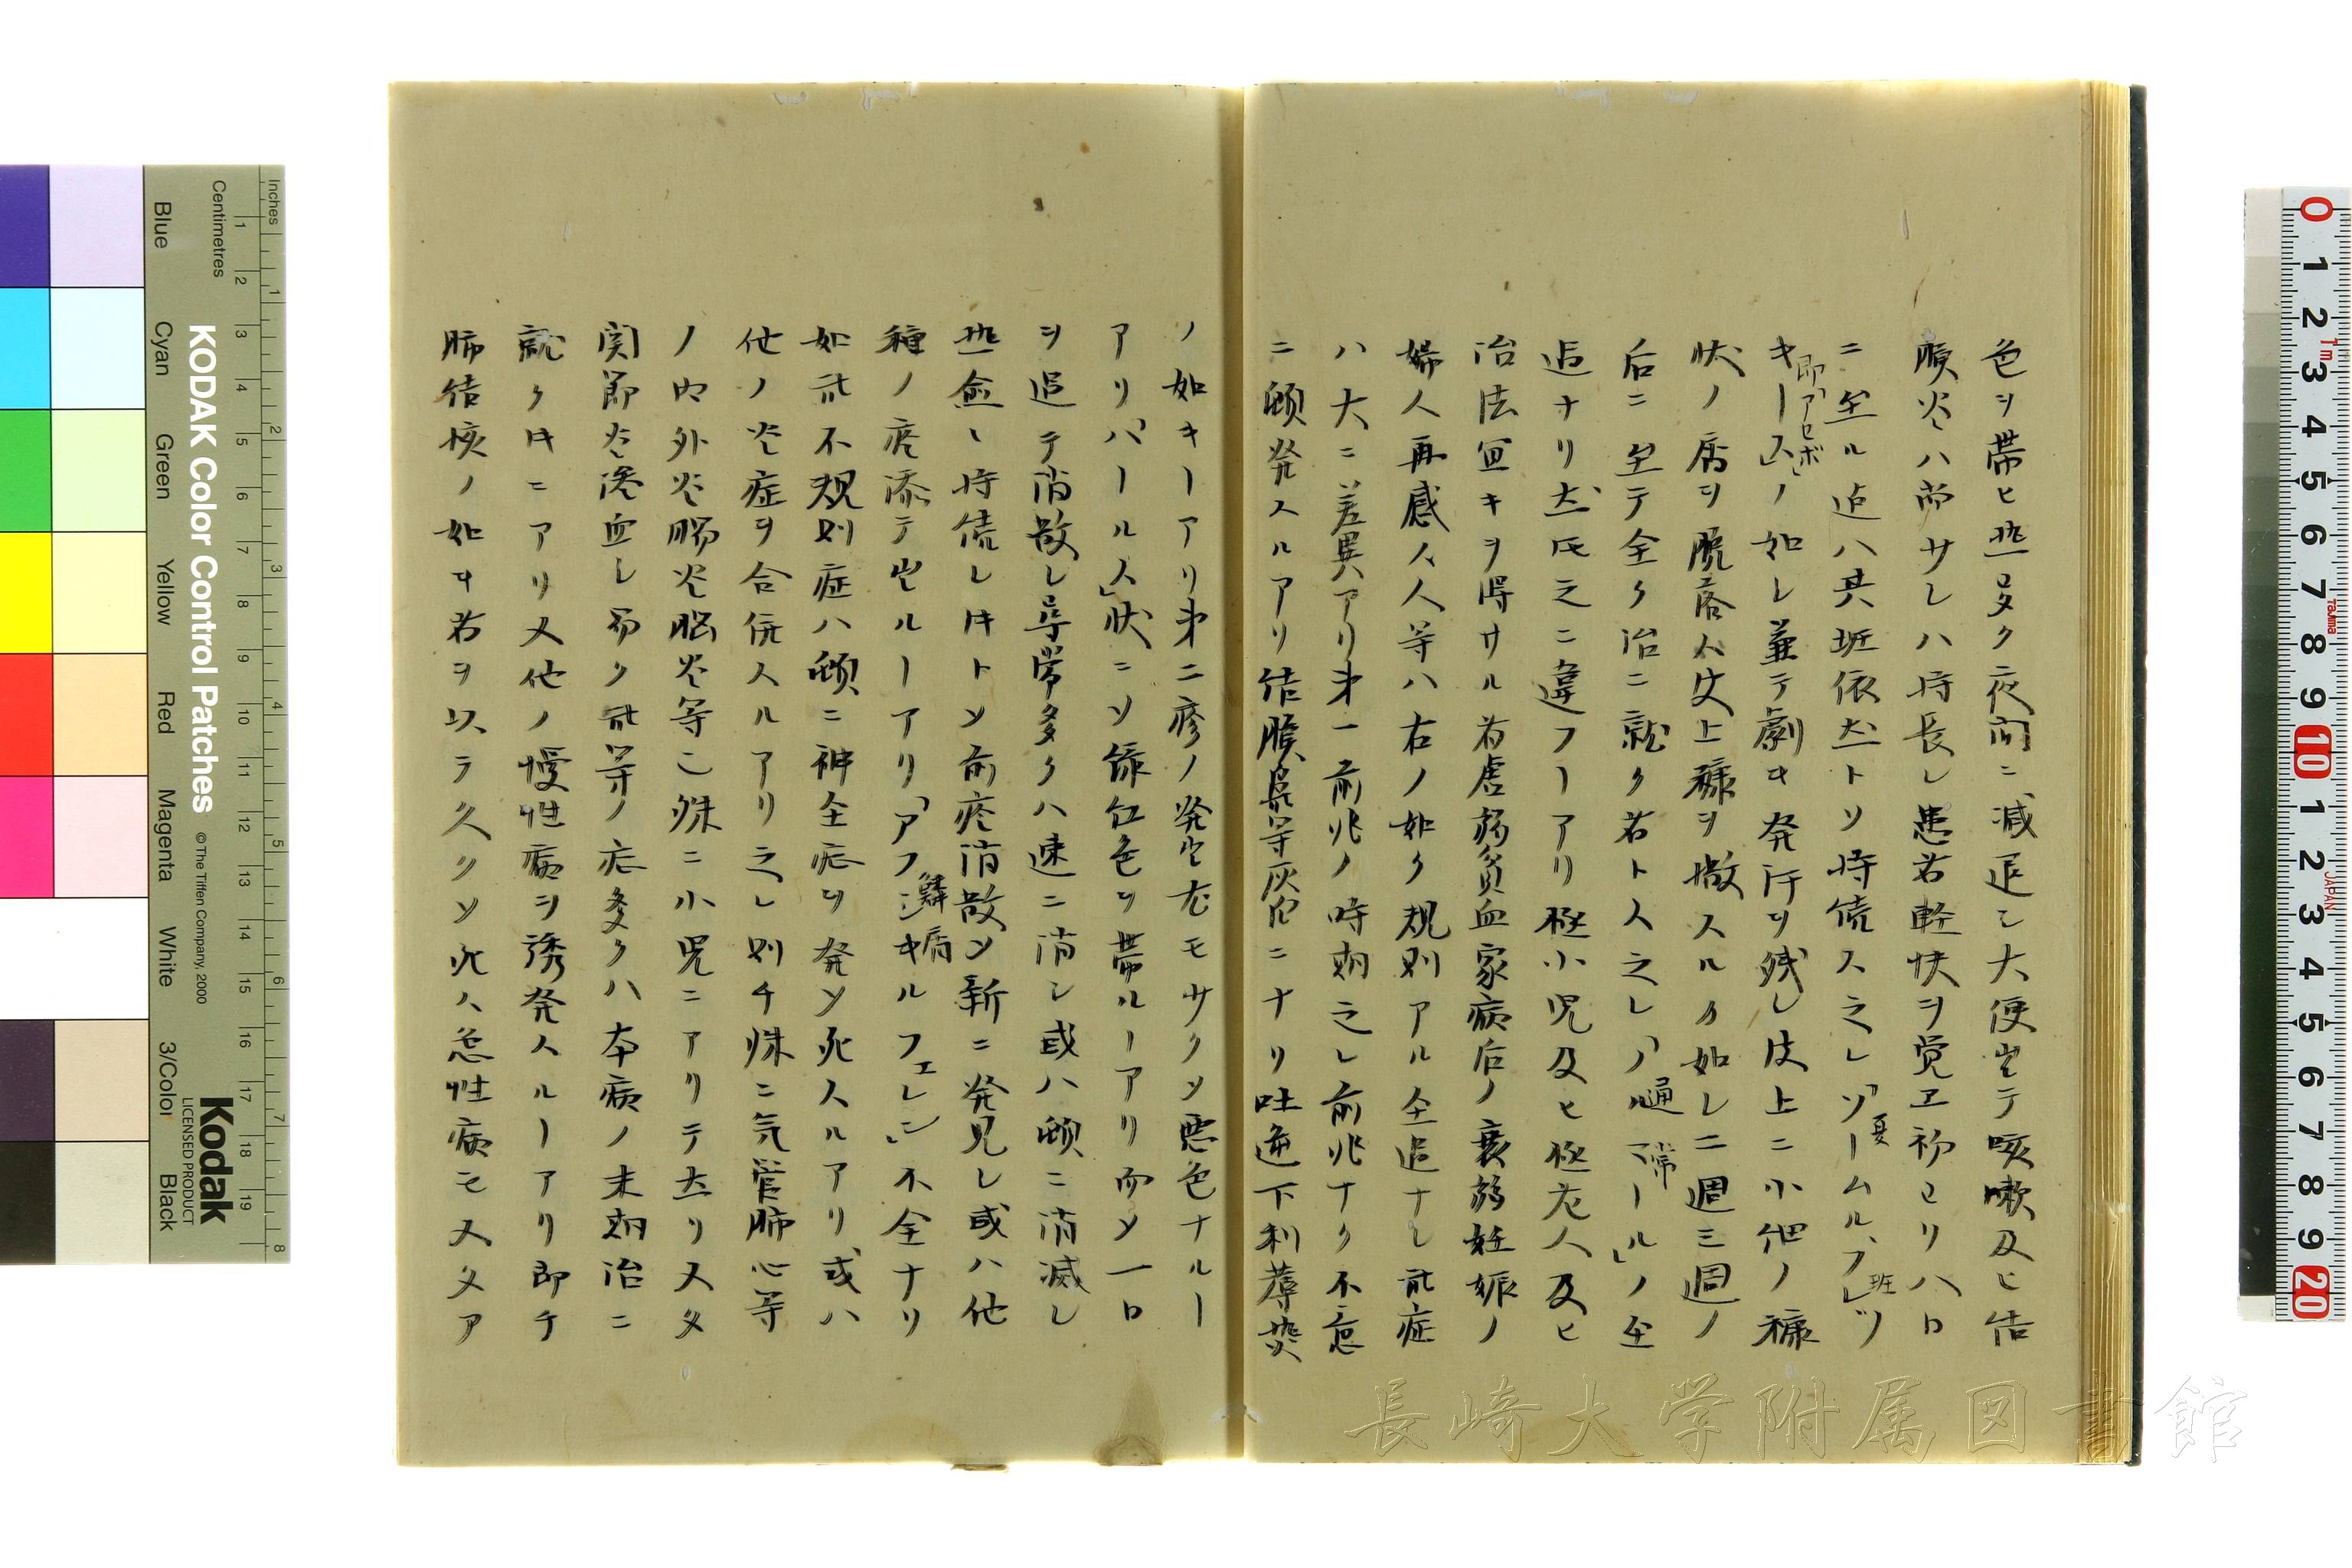 色ヲ帯ヒ熱多ク夜間ニ減退シ大便少テ咳嗽及ヒ結
膜炎ハ尚サレハ時長シ患者軽快ヲ覚ヱ初ヨリハロ
ニ至ル迠ハ其斑依然トソ時続ス之レ「ソームル、フレッ
夏 斑
キース」ノ如シ兼テ劇キ発汗ヲ残シ皮上ニ小細ノ糠
即「アセボ」
状ノ屑ヲ脱落ス皮上糠ヲ撒スルカ如シ二週三週ノ
后ニ至テ全ク治ニ就ク若トス之レ「ノルマール」ノ全
通常
追ナリ然氏之ニ違フーアリ極小児及ヒ極老人及ヒ
治法宜キヲ得サル者虚弱貧血家病后ノ衰弱妊娠ノ
婦人再感ノ人等ハ右ノ如ク規則アル全追ナシ此症
ハ大ニ差異アリ第一前兆ノ時期之レ前兆ナク不意
ニ頓発スルアリ結膜鼻等灰白ニナリ吐逆下利蓐熒
ノ如キーアリ第二疹ノ発生尤モサクソ悪色ナルー
アリ「パールス」状ニソ緑紅色ヲ帯ルーアリ而ソ一ロ
ヲ追テ消散シ尋常多クハ速ニ消シ或ハ頓ニ消滅シ
熱愈〻時続シ件トソ前疹消散ソ新ニ発見シ或ハ他
種ノ疹添テ出ルーアリ「アフシキルフェレン」不全ナリ
鱗屑
如此不規則症ハ頓ニ神全症ヲ発ソ死スルアリ或ハ
他ノ炎症ヲ合併スルアリ之レ則チ殊ニ気管肺心等
ノ内外炎腸炎脳炎等こ殊ニ小児ニアリテ然リ又タ
関節炎滲血シ易ク此等ノ症多クハ本病ノ末期治ニ
就ク件ニアリ又他ノ慢性病ヲ誘発スルーアリ即チ
肺結核ノ如キ者ヲ以テ久クソ死ス急性病モ又タア
長崎大学附属図書館
KODAK Color Control Patches
© The Tiffen Company, 2000
Kodak
LICENSED PRODUCT
Inches
Centimetres
Blue
Cyan
Green
Yellow
Red
Magenta
White
3/Color
Black